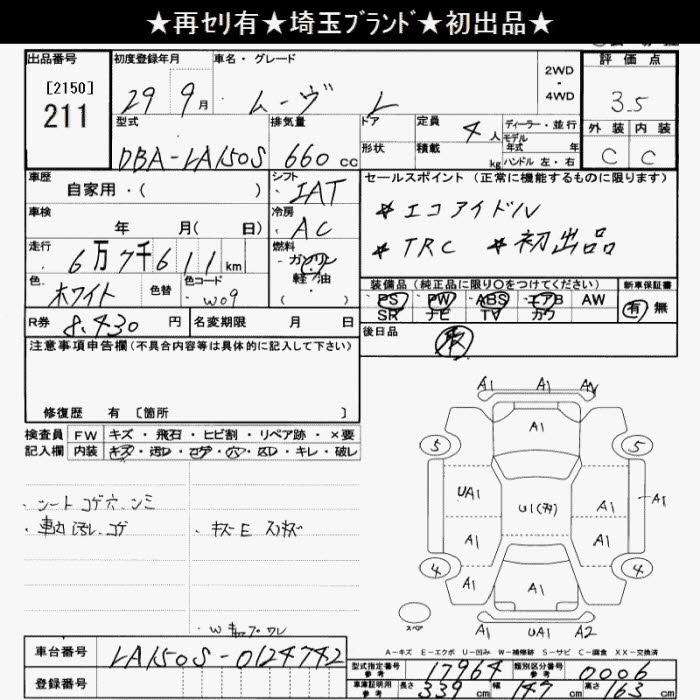 ★再セリ有★埼玉ブランド★初出品★
出品番号
[2150]
211
初度登録年月
29 9月
車名・グレード
ムーヴ L
2WD
・
4WD
評価点
3.5
型式
DBA-LA150S
排気量
660 cc
ドア
形状
定員
4人
積載
kg
ディーラー・並行
モデル
年式 年
ハンドル 左・右
外装 内装
C C
車歴
自家用・( )
シフト
IAT
セールスポイント (正常に機能するものに限ります)
★エコアイドル
★TRC ★初出品
車検
年 月( 日)
冷房
AC
走行
6万7千611km
燃料
ガソリン
軽油
( )
色
ホワイト
色替
色コード
W09
装備品(純正品に限り○をつけてください)
PS PW ABS エアB AW
SR ナビ TV カワ
新車保証書
有 無
R券 8,430円
名変期限 月 日
後日品
取
注意事項申告欄(不具合内容等は具体的に記入して下さい)
修復歴 有 [箇所 ]
検査員 FW キズ・飛石・ヒビ割・リペア跡・×要
記入欄 内装 キズ・汚レ・コゲ・穴・凹レ・キレ・破レ
・シートコゲ穴、シミ
・車内汚レ、コゲ
・キズE スリキズ
A1 A1 A1
5 A1 5
UA1 A1 A1
A1 A1
4 A1 A1 A1 4
スペア
A1 UA1 A2
A-キズ E-エクボ U-凹み W-補修跡 S-サビ C-腐食 XX-交換済
車台番号 LA150S-0124742
登録番号
型式指定番号
参考
17964
類別区分番号
参考
0006
車庫証明用
参考
長さ 339cm 幅 147cm 高さ 163cm